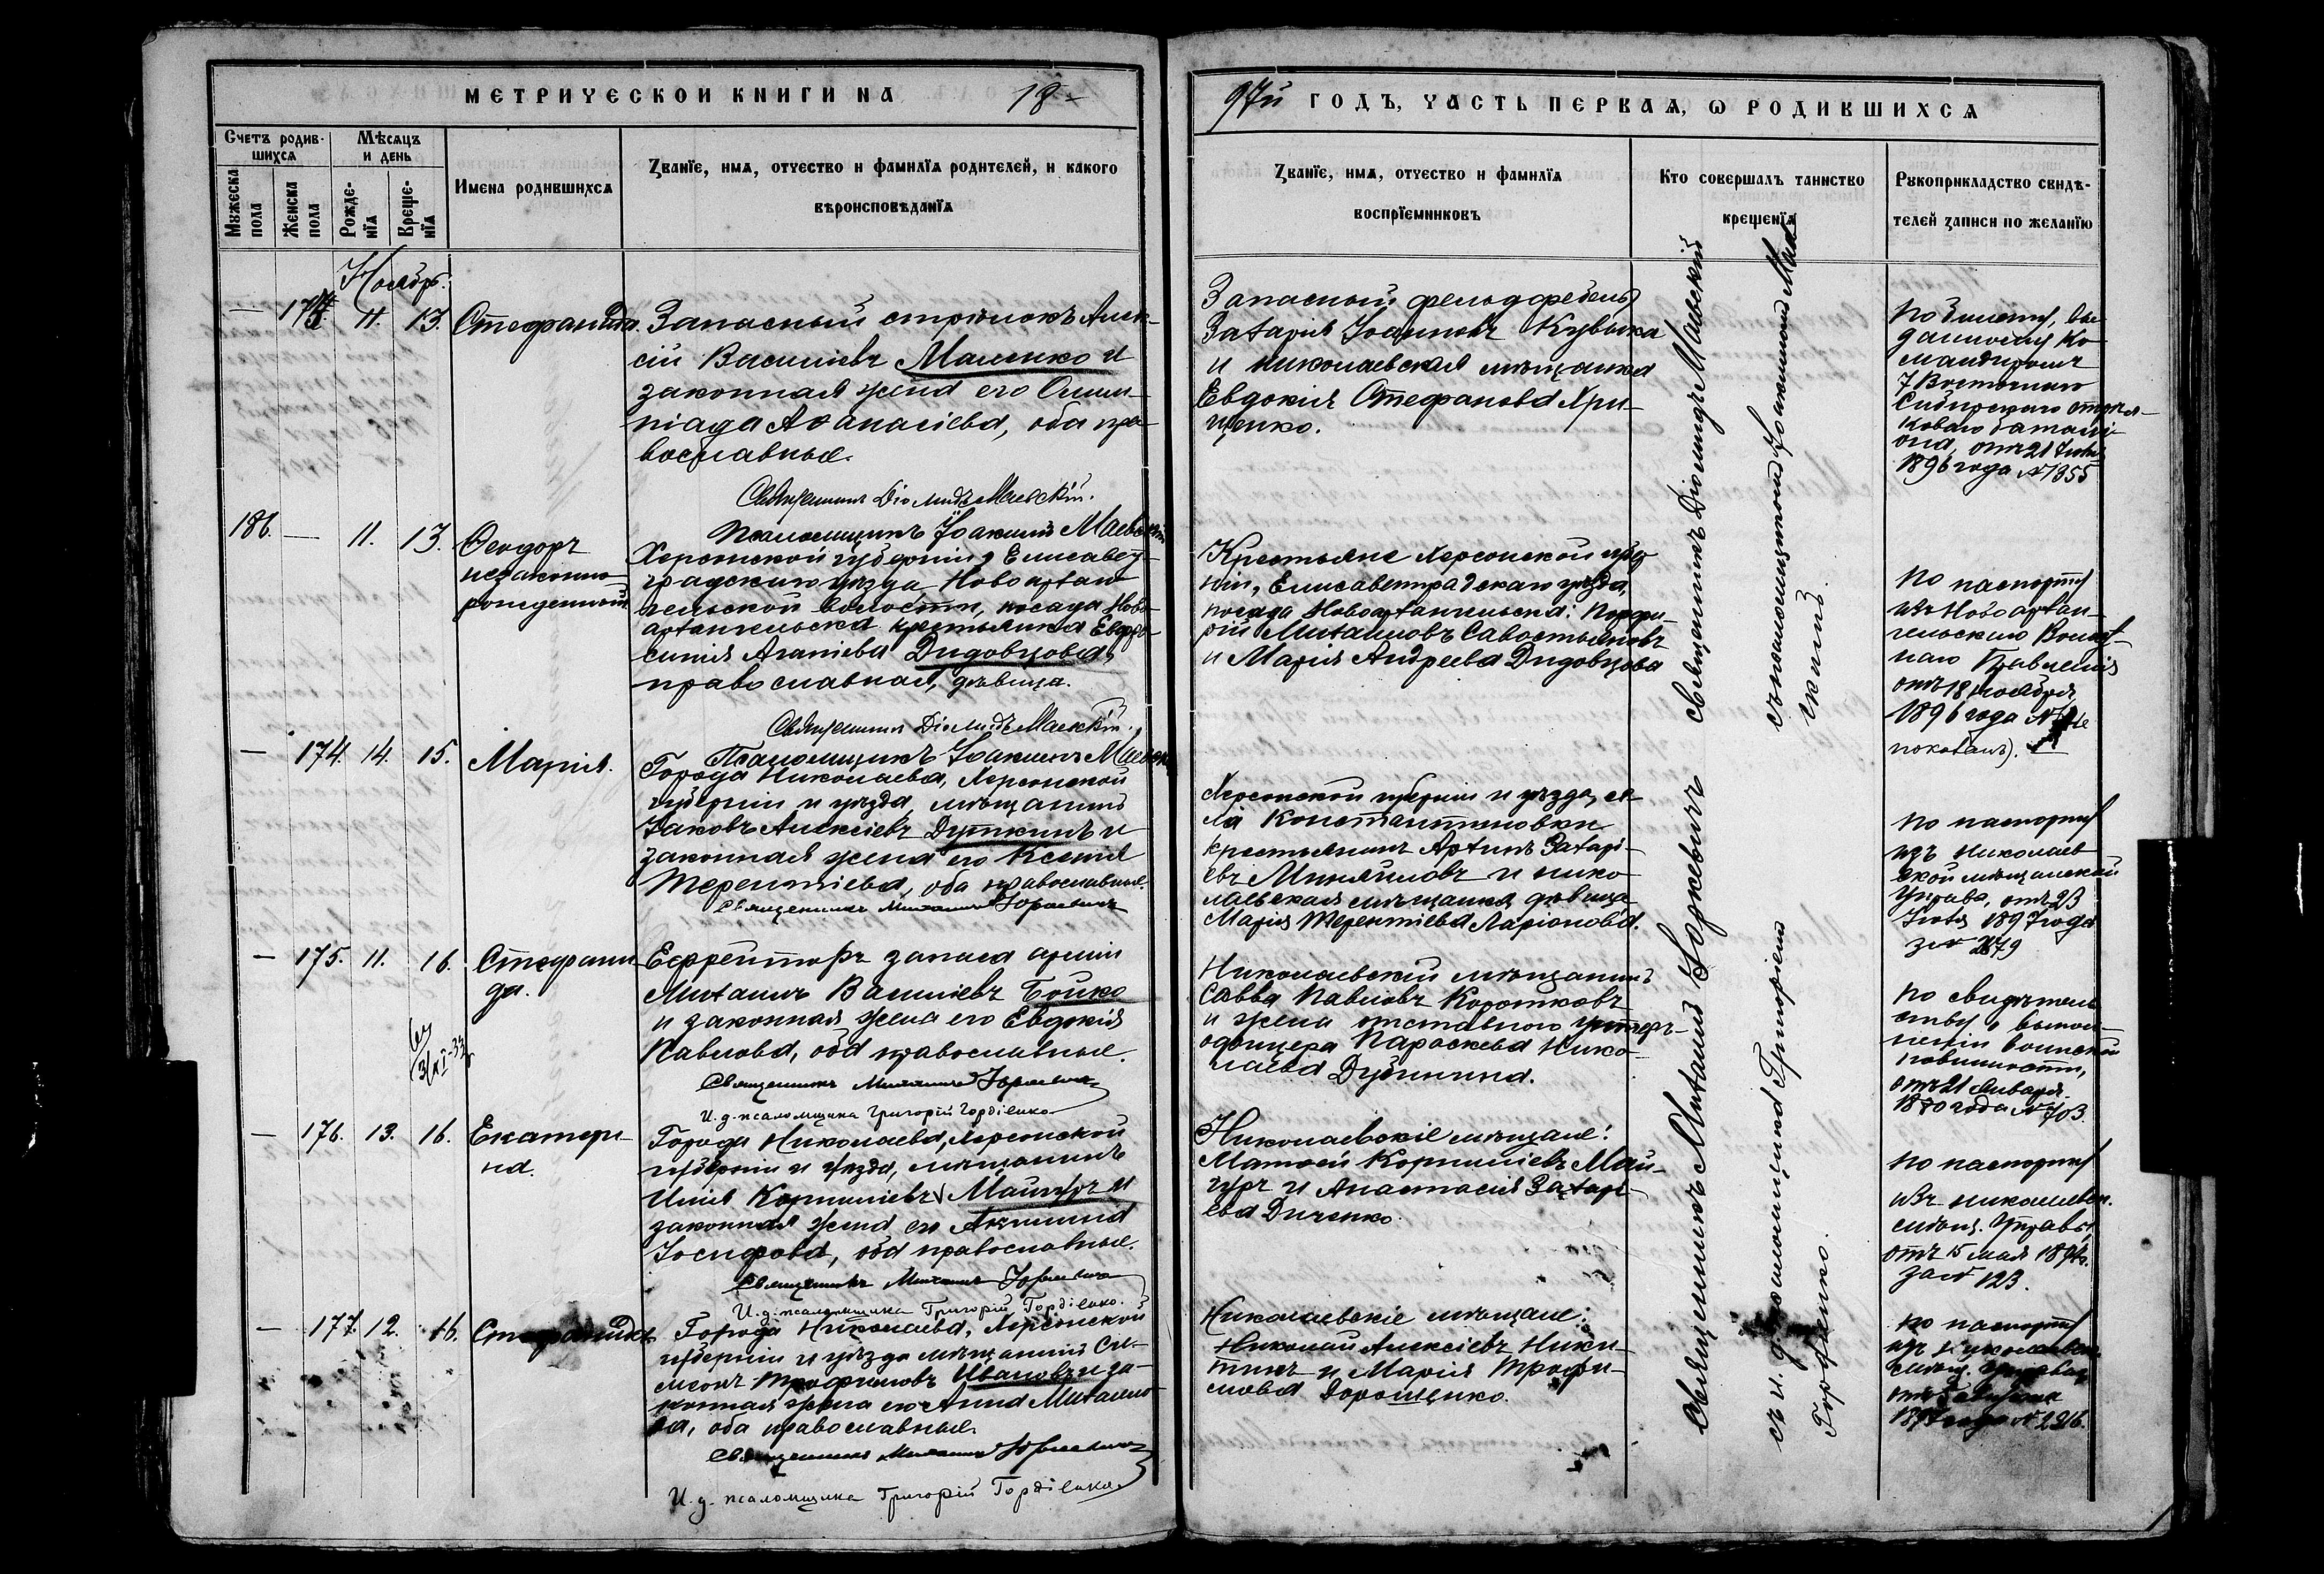 МЕТРИЧЕСКОЙ КНИГИ НА 18
97й ГОДЪ, ЧАСТЬ ПЕРВАЯ, Ѡ РОДИВШИХСЯ
Счетъ родив-
шихся
Мѣсяцъ
и день
Мужеска
пола
Женска
пола
Рожде-
нїя
Креще-
нїя
Имена родившихся
Званїе, имя, отчество и фамилїя родителей, и какого
вѣроисповѣданїя
Званїе, имя, отчество и фамилїя
воспрїемниковъ
Кто совершалъ таинство
крещенїя
Рукоприкладство свидѣ-
телей записи по желанїю
Ноябрь.
— 173. 11. 13. Стефанида.
Запасный стрѣлокъ Алек-
сій Василіевъ Маленко и
законная жена его Олим-
піада Аѳанасіева, оба пра-
вославные.
Священникъ Діомидъ Маевскій.
Псаломщикъ Іоакимъ Маевскій
Запасный фельдфебель
Захарій Іоанновъ
и николаевская мѣщанка
Евдокія Стефанова Хри-
щенко.
По билету, вы-
данному Ко-
мандиромъ
7 Восточнаго
Сибирскаго стрѣл-
коваго баталі-
она, отъ 21
1896 года № 1355
186. — 11. 13. Ѳеодоръ
незаконно-
рожденный
Херсонской губерніи, Елисавет-
градскаго уѣзда, Новоархан-
гельской волости, посада Ново-
архангельска крестьянка Евфро-
синія Агапіева Дидовцова,
православная, дѣвица.
Священникъ Діомидъ Маевскій.
Псаломщикъ Іоакимъ Маевскій
Крестьяне Херсонской губер-
ніи, Елисаветградскаго уѣзда,
посада Новоархангельска: Порфи-
рій Михаиловъ Савостьяновъ
и Марія Андреева Дидовцова
По паспорту
изъ Новоархан-
гельскаго Волост-
наго Правленія
отъ 18 ноября
1896 года № (не
показанъ).
— 174. 14. 15. Марія.
Города Николаева, Херсонской
губерніи и уѣзда, мѣщанинъ
Іаковъ Алексіевъ Дуткинъ и
законная жена его Ксенія
Терентіева, оба православные.
Священникъ Михаилъ Юркевичъ
Херсонской губерніи и уѣзда, се-
ла Константиновки
крестьянинъ Артимъ Захарі-
евъ и нико-
лаевская мѣщанка дѣвица
Марія Терентіева Ларіонова.
По паспорту
изъ Николаев-
ской мѣщанской
Управы, отъ 23
1897 года
за № 2679
— 175. 11. 16. Стефани-
да.
Ефрейторъ запаса арміи
Михаилъ Василіевъ Бойко
и законная жена его Евдокія
Павлова, оба православные.
Священникъ Михаилъ Юркевичъ
И. д. псаломщика Григорій Гордіенко
Николаевскій мѣщанинъ
Савва Павловъ Коротковъ
и жена отставного унтеръ-
офицера Параскева Нико-
лаева Дубинина.
По свидѣтель-
ству о выпол-
неніи воинской
повинности,
отъ 21 Января
1880 года № 703.
— 176. 13. 16. Екатери-
на.
Города Николаева, Херсонской
губерніи и уѣзда, мѣщанинъ
Илія Корниліевъ Майгуръ и
законная жена его Акилина
Іосифова, оба православные.
Священникъ Михаилъ Юркевичъ
И. д. псаломщика Григорій Гордіенко.
Николаевскіе мѣщане:
Матѳей Корниліевъ Май-
гуръ и Анастасія Захарі-
ева Диченко.
По паспорту
изъ николаевск.
мѣщ. Управы,
отъ 15 мая 189
за № 123.
— 177. 12. 16. Стефанида
Города Николаева, Херсонской
губерніи и уѣзда мѣщанинъ Си-
меонъ Трофимовъ Ивановъ и за-
конная жена его Анна Михаило-
ва, оба православные.
Священникъ Михаилъ Юркевичъ
И. д. псаломщика Григорій Гордіенко
Николаевскіе мѣщане:
Николай Алексіевъ Ники-
тинъ и Марія Трофи-
мова Дорошенко.
По паспорту
изъ Николаевск.
мѣщ. Управы
1897 года № 2316.
Священникъ Діомидъ Маевскій
съ псаломщикомъ Іоакимомъ Маев-
скимъ.
Священникъ Михаилъ Юркевичъ
съ и. д. псаломщика Григоріемъ
Гордіенко.